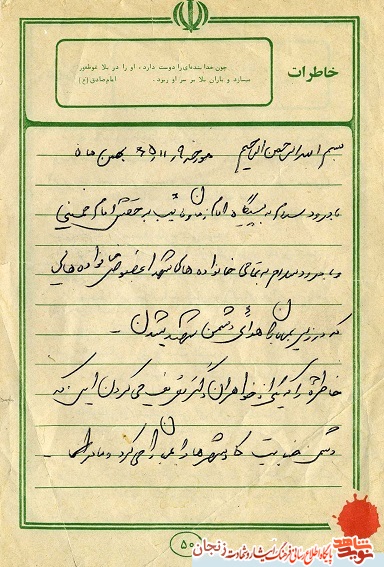 خاطرات
چون خدا بنده‌ای را دوست دارد، او را در بلا غوطه‌ور
سازد و باران بلا بر سر او ریزد. امام صادق (ع)
بسم الله الرحمن الرحیم مورخه ۶۵/۱۱/۹ بهمن ماه
با درود و سلام به پیشگاه امام زمان و نائب بر حقش امام خمینی
و با درود و سلام به تمامی خانواده های شهدا بخصوص خانواده هایی
که در زیر بمباران هوائی دشمن شهید شدن -
خاطره را که یکی از خواهران دکتر تعریف می کردن این که
دشمن که شهرها را بمباران می کرد و مادران
۵۰
نوید شاهد
پایگاه اطلاع رسانی فرهنگ ایثار و شهادت زنجان